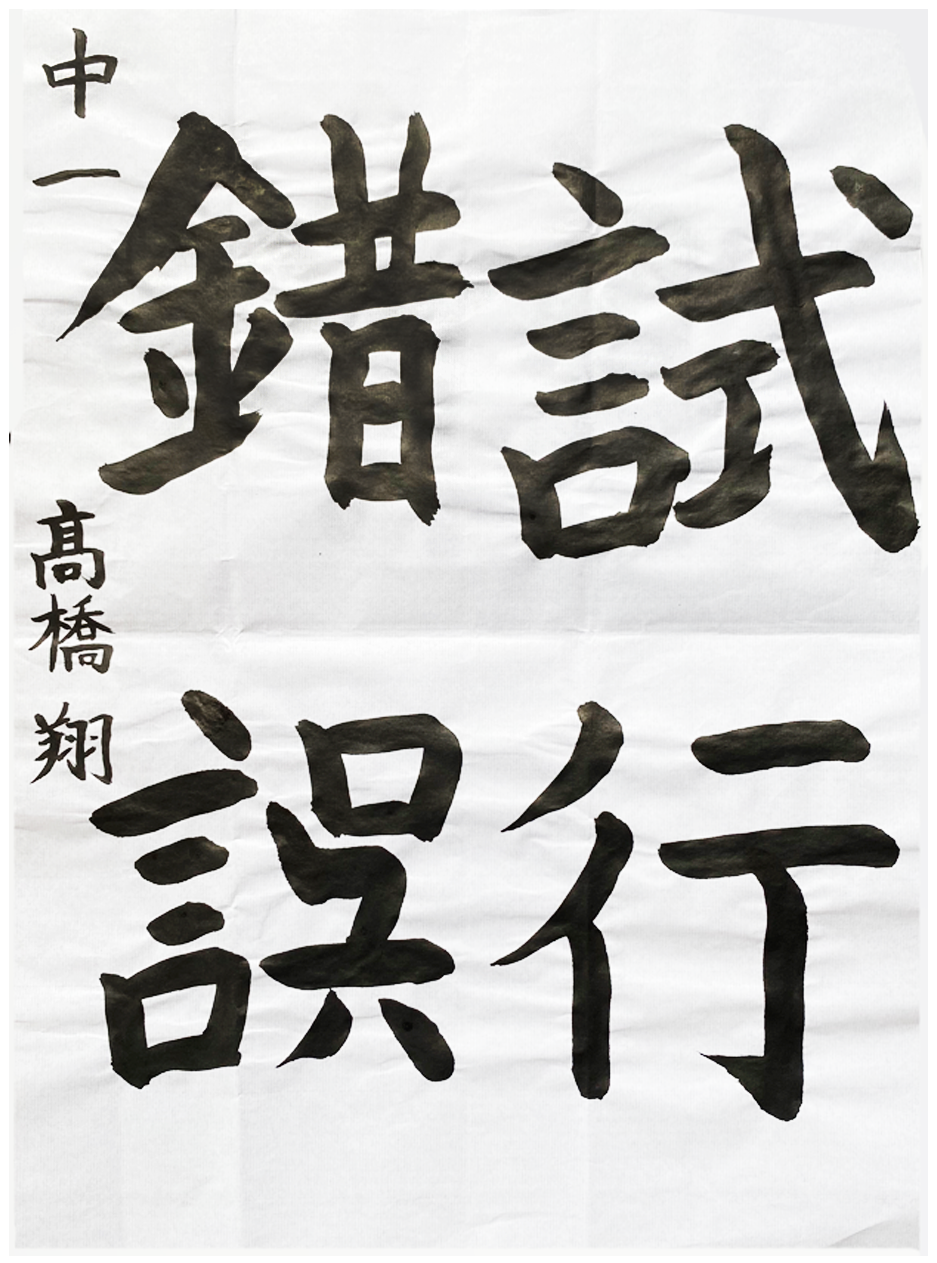 試行
錯誤
中一 髙橋 翔